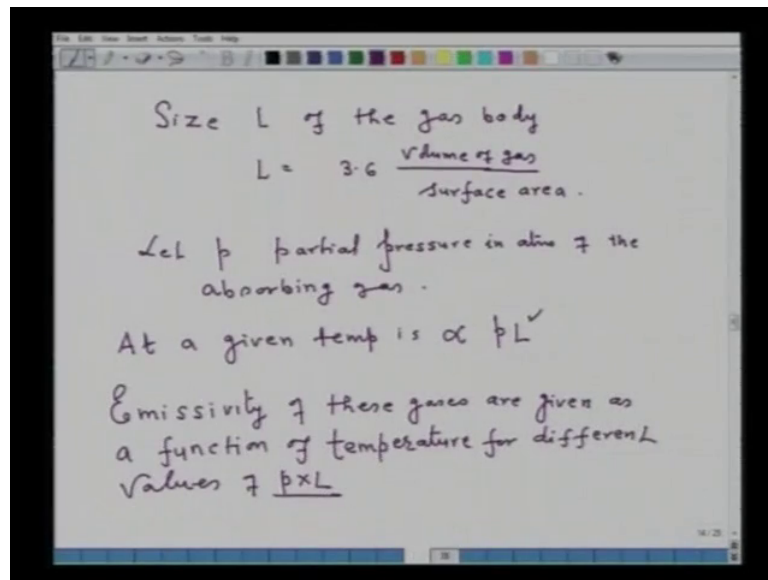 File Edit View Insert Actions Tools Help
Size L of the gas body
L = 3.6 Volume of gas
surface area.
Let p partial pressure in atm of the
absorbing gas.
At a given temp is ∝ pL ✓
Emissivity of these gases are given as
a function of temperature for different
Values of p×L
14/25